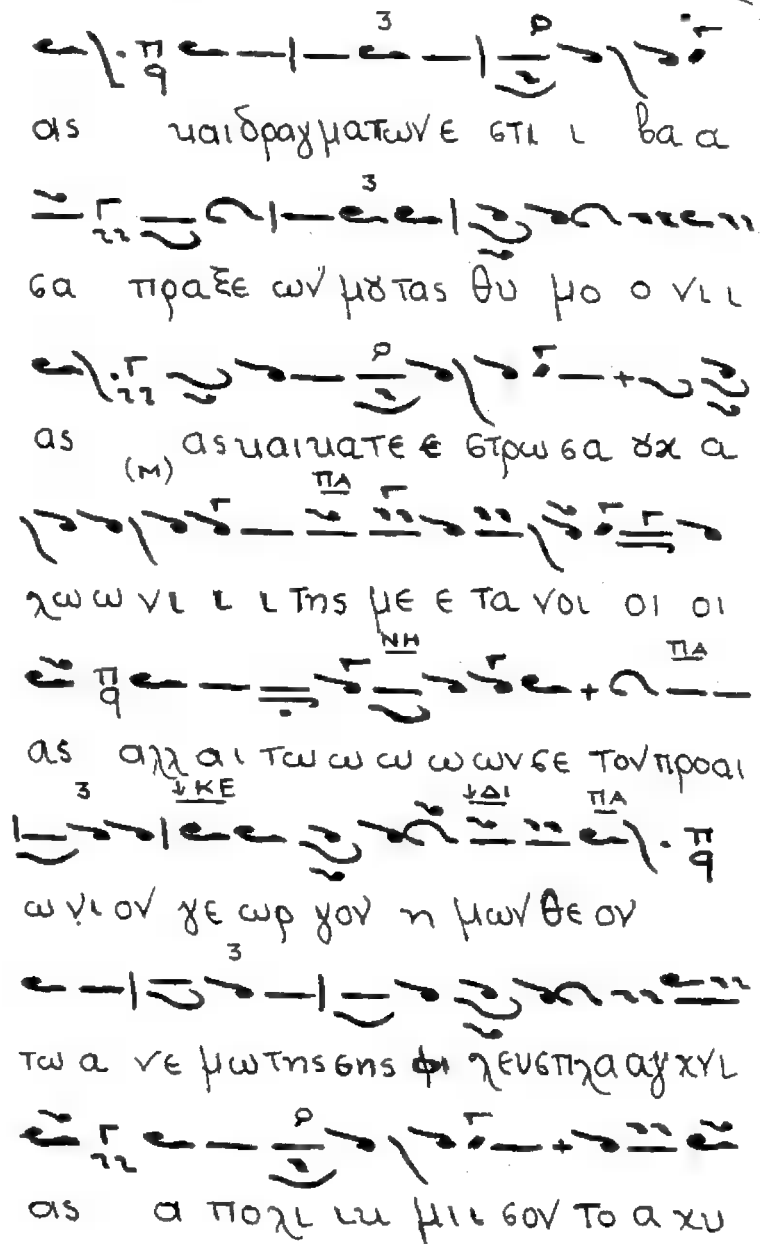 3
π q
ας και δραγματων ε στι ι βα α
3
σα πραξε ων μȣ τας θυ μο ο νι ι
ας ας και κατε ε στρω σα ȣχ α
(Μ) ΠΑ
λω ω νι ι ι της με ε τα νοι οι οι
ΝΗ ΠΑ
π q
ας αλλ αι τω ω ω ω ων σε τον προαι
3 ↓ΚΕ ↓ΔΙ ΠΑ
π q
ω νι ον γε ωρ γον η μων θε ον
3
τω α νε μω της σης φι λευσπλα αγ χνι
ας α πο λι ικ μι ι σον το α χυ